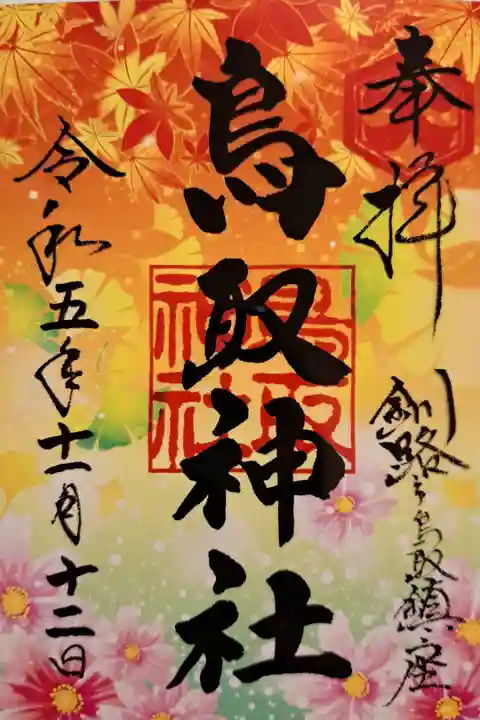 奉拝
釧路之鳥取鎮座
鳥取神社
鳥取
神社
令和五年十一月十二日